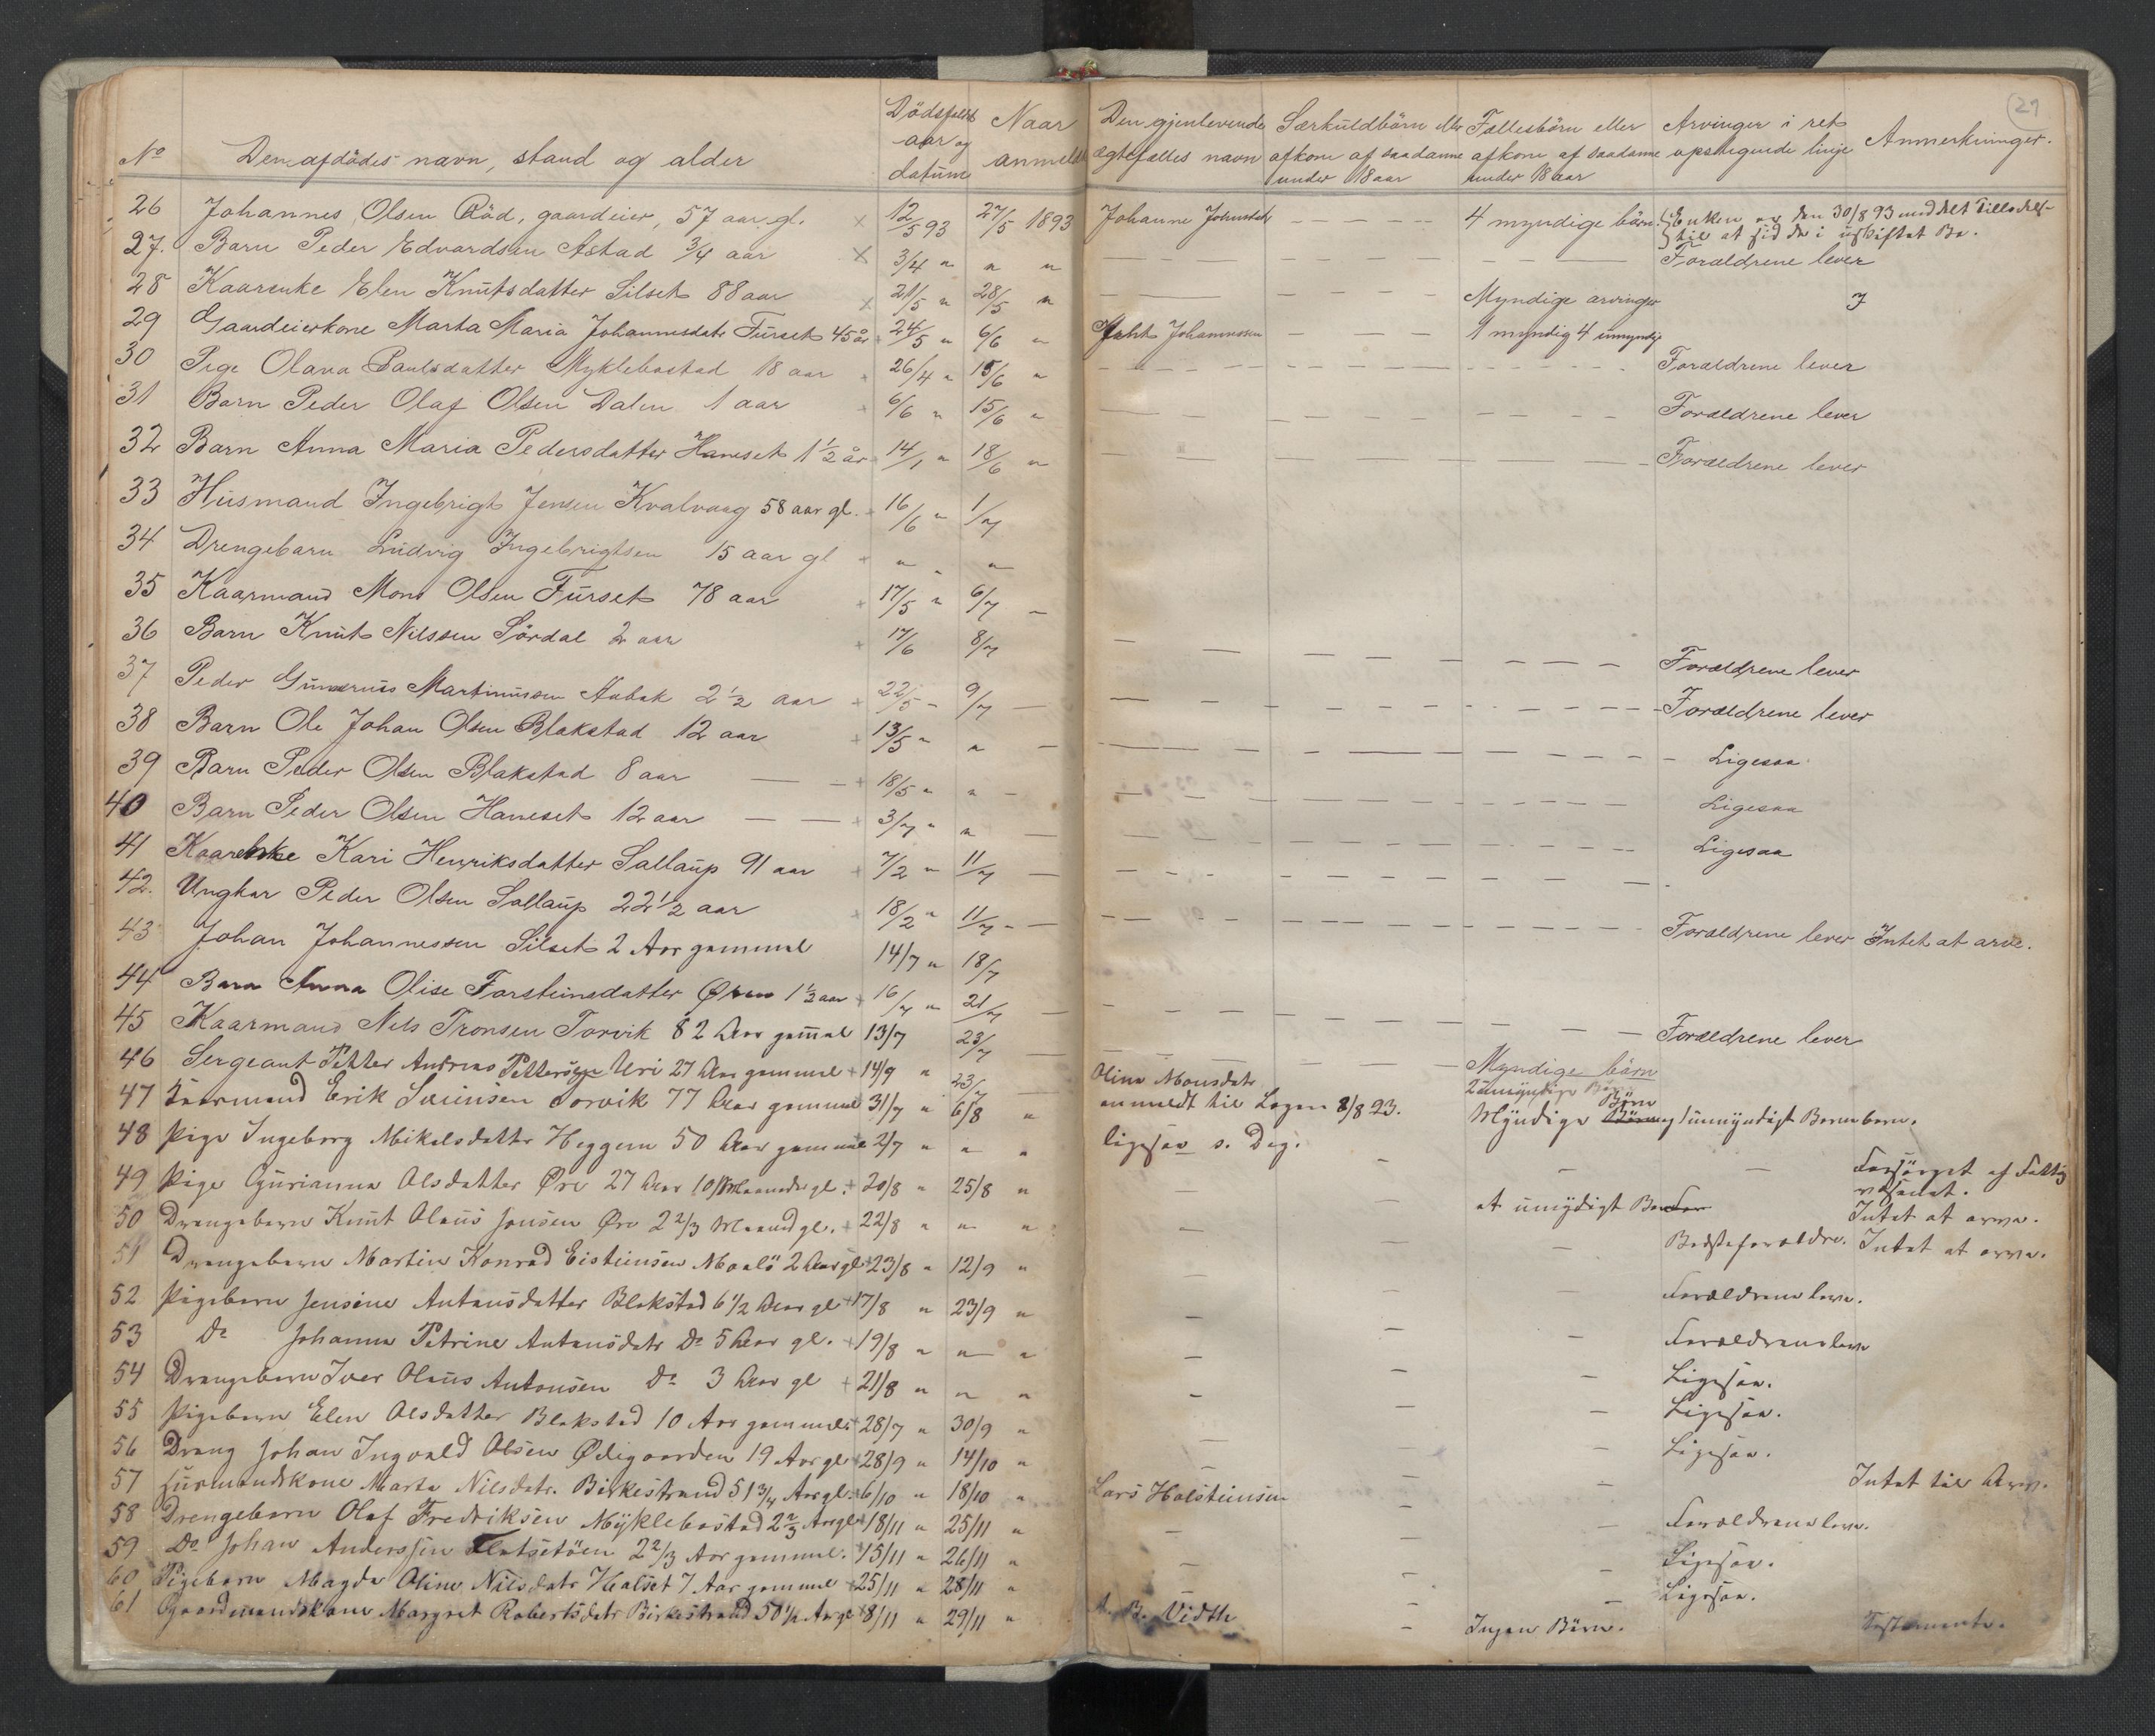 29
No Den afdödes navn, stand og alder Dödsfaldets aar og datum Naar anmeldt Den gjenlevende ægtefælles navn Særkuldbörn eller afkom af saadanne under 18 aar Fællesbörn eller afkom af saadanne under 18 aar Arvinger i ret opstigende linje Anmerkninger.
26 Johannes Olsen Röd, gaardeier, 57 aar gl. x 12/5 93 27/5 1893 Johanne - - - - 4 myndige börn. Enken er den 30/8 93 med delt
til at sidde i uskiftet Bo.
27. Barn Peder Edvardsen Astad 3/4 aar x 3/4 " " " Forældrene lever
28 Kaarenke Elen Knutsdatter Silset 88 aar x 21/5 " 28/5 " Myndige arvinger
29 Gaardeierkone Marta Maria Johannesdatr Furset 45 år 24/5 " 6/6 " Johannessen 1 myndig 4 umyndig
30 Pige Olava Paulsdatter Myklebostad 18 aar 26/4 " 15/6 " Forældrene lever
31 Barn Peder Olaf Olsen Dalen 1 aar 6/6 " 15/6 " Forældrene lever
32 Barn Anna Maria Pedersdatter Hanset 1 1/2 år 14/1 " 18/6 " Forældrene lever
33 Husmand Ingebrigt Jensen Kvalvaag 58 aar gl. 16/6 " 1/7
34 Drengebarn Ludvig Ingebrigtsen 15 aar gl + " " "
35 Kaarmand Mons Olsen Furset 78 aar + 17/5 " 6/7 "
36 Barn Knut Nilssen Sördal 2 aar + 17/6 8/7 Forældrene lever
37 Peder Martinussen 2 1/2 aar + 22/5 - 9/7 - Forældrene lever
38 Barn Ole Johan Olsen Blakstad 12 aar + 13/5 " " - Ligesaa
39 Barn Peder Olsen Blakstad 8 aar + 18/5 " " - Ligesaa
40 Barn Peder Olsen Haneset 12 aar + 3/7 " " - Ligesaa
41 Kaarenke Kari Henriksdatter Sallaup 91 aar + 7/2 " 11/7 -
42. Ungkar Peder Olsen Sallaup 22 1/2 aar + 18/2 " 11/7 - Forældrene lever Intet at arve.
43 Johan Johannessen Silset 2 Aar gammel 14/7 " 18/7
44 Barn Anna Olise Torsteinsdatter Øren 1 1/2 aar + 16/7 " 21/7 - Forældrene lever
45 Kaarmand Nils Tronsen Torvik 82 Aar gammel 13/7 23/7 - Myndige börn
46 Sergeant Petter Andreas Pettersen Uri 27 Aar gammel + 14/9 " 23/7 Olina Monsdatr 2 umyndige Börn
47 Kaarmand Erik Torvik 77 Aar gammel 31/7 " 6/8 " anmeldt til 8/8 93. Myndige Börn og 1 umyndigt Barnebarn.
48 Pige Ingeborg Mikelsdatter Heggem 50 Aar gammel 2/7 " " " ligesaa s. Dag.
49 Pige Gurianna Olsdatter Øre 27 Aar 10 Maaneder gl. + 20/8 " 25/8 " et umyndigt Barn Forsörget af Fattigvæsenet. Intet at arve.
50 Drengebarn Knut Olaus Jonsen Øre 2 2/3 Maaned gl. + 22/8 " " " Bedsteforældre. Intet at arve.
51 Drengebarn Martin Konrad Eisteinsen 2 Aar gl + 23/8 " 12/9 " Forældrene lever.
52 Pigebarn Jensine Antonsdatter Blakstad 6 1/2 Aar gl + 17/8 " 23/9 " Forældrene lever
53 Do Johanna Petrine Antonsdatr Do 5 Aar gl. + 19/8 " " " Ligesaa.
54 Drengebarn Iver Olaus Antonsen Do 3 Aar gl + 21/8 " " " Ligesaa.
55 Pigebarn Elen Olsdatter Blakstad 10 Aar gammel + 28/7 " 30/9 " Ligesaa.
56 Dreng Johan Ingvald Olsen Ødegaarden 19 Aar gl + 28/9 " 14/10 "
57 Husmandskone Marta Nilsdatr. Birkestrand 51 3/4 Aar gl. + 6/10 " 18/10 " Lars Halsteinsen Intet til Arv.
58 Drengebarn Olaf Fredriksen Myklebostad 2 2/3 Aar gl + 18/11 " 25/11 " Forældrene lever.
59 Do Johan Anderssen Flatsetöen 2 2/3 Aar gammel. + 15/11 " 26/11 " Ligesaa.
60 Pigebarn Magda Oline Nilsdatr Halset 7 Aar gammel + 25/11 " 28/11 " Ligesaa.
61 Gaardmandskone Margret Robertsdatr Birkestrand 50 1/2 Aar gl + 8/11 " 29/11 " Ingen Börn. Testamente.